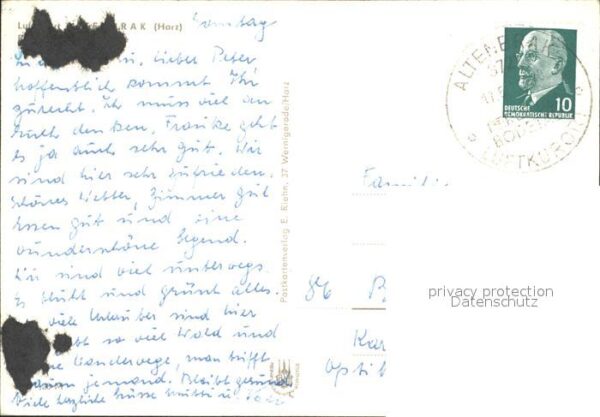 Sonntag
Luftkurort ALTENBRAK (Harz)
lieber Peter
hoffentlich kommt Ihr
zurecht. Ich muss viel an
Euch denken, Frauke geht
es ja auch sehr gut. Wir
sind hier sehr zufrieden.
Schönes Wetter, Zimmer gut
Essen gut und eine
wunderschöne Gegend.
Wir sind viel unterwegs.
Es blüht und grünt alles.
viele Urlauber sind hier
so viel Wald und
Wanderwege, man trifft
kaum jemand. Bleibt gesund
Viele herzliche Grüsse Mutti u.
Postkartenverlag E. Riehn, 37 Wernigerode/Harz
ALTENBRAK
BODETAL
LUFTKURORT
10
DEUTSCHE
DEMOKRATISCHE REPUBLIK
Famili
86 P
Kar
Optik
privacy protection
Datenschutz